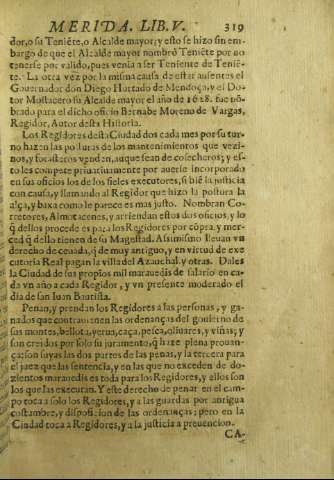 MERIDA. LIB. V. 319
dor, o su Teniẽte, o Alcalde mayor; y esto se hizo sin em-
bargo de que el Alcalde mayor nombrò Teniẽte por no
tenerse por valido, pues venia a ser Teniente de Teniẽ-
te. La otra vez por la misma causa de estar ausentes el
Gouernador don Diego Hurtado de Mendoça, y el Do-
tor Mostacero su Alcalde mayor el año de 1628. fue nõ-
brado para el dicho oficio Bernabe Moreno de Vargas,
Regidor, Autor desta Historia.
Los Regidores desta Ciudad dos cada mes por su tur-
no hazen las posturas de los mantenimientos que vezi-
nos, y forasteros venden, aunque sean de cosecheros; y es-
to les compete priuatiuamente por auerse incorporado
en sus oficios los de los fieles executores, si biẽ la justicia
con causa, y llamando al Regidor que hizo la postura la
alça, y baxa como le parece es mas justo. Nombran Co-
rretores, Almotacenes, y arriendan estos dos oficios, y lo
q̃ dellos procede es para los Regidores por cõpra, y mer-
ced q̃ dello tienen de su Magestad. Assimismo lleuan vn
derecho de ceuada, q̃ de muy antiguo, y en virtud de exe
cutoria Real pagan la villa del Azauchal, y otras. Dales
la Ciudad de sus propios mil marauedis de salario en ca-
da vn año a cada Regidor, y vn presente moderado el
dia de san Iuan Bautista.
Penan, y prendan los Regidores a las personas, y ga-
nados que contrauienen las ordenanças del gouierno de
sus montes, bellota, yerua, caça, pesca, oliuares, y viñas; y
son creidos por solo su juramento, q̃ haze plena prouan-
ça: son suyas las dos partes de las penas, y la tercera para
el juez que las sentencia, y en las que no exceden de do-
zientos marauedis es toda para los Regidores, y ellos son
los que las executan. Y este derecho de penar en el cam-
po toca a solo los Regidores, y a las guardas por antigua
costumbre, y disposicion de las ordenanças; pero en la
Ciudad toca a Regidores, y a la justicia a preuencion.
CA-